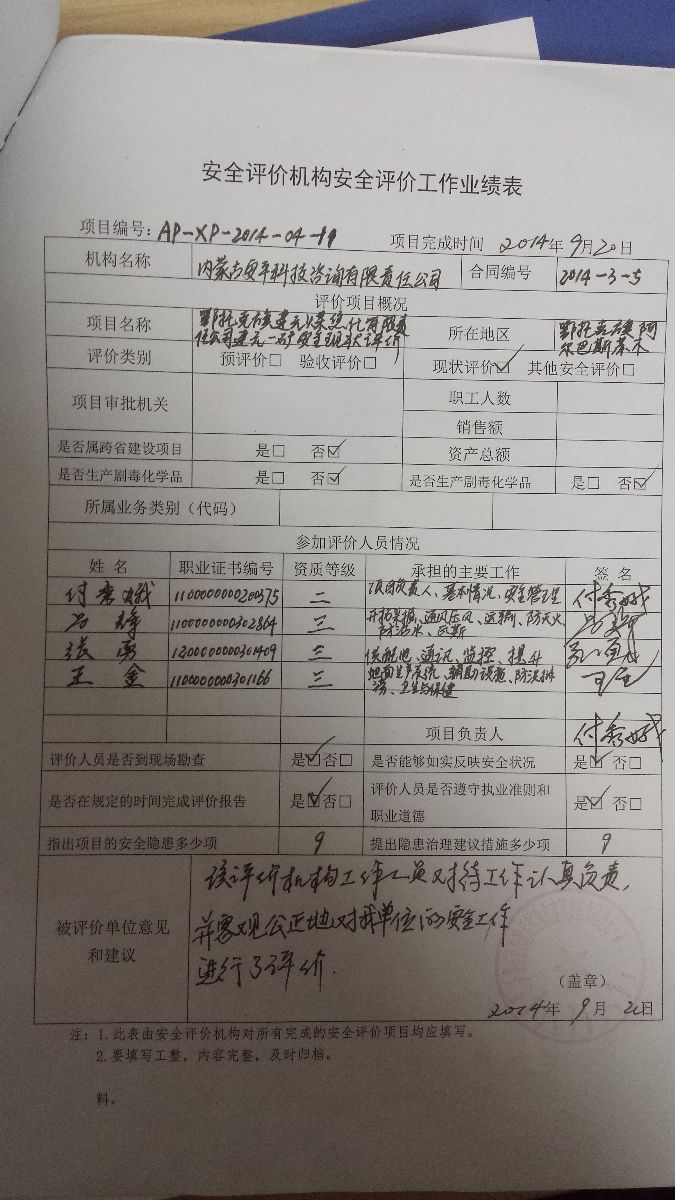 安全评价机构安全评价工作业绩表
项目编号: AP-XP-2014-04-19 项目完成时间 2014年9月20日
机构名称 内蒙古安平科技咨询有限责任公司 合同编号 2014-3-5
评价项目概况
项目名称 鄂托克旗建元煤焦化有限责任公司建元一矿安全现状评价 所在地区 鄂托克旗阿尔巴斯苏木
评价类别 预评价□ 验收评价□ 现状评价☑ 其他安全评价□
项目审批机关 职工人数
销售额
是否属跨省建设项目 是□ 否☑ 资产总额
是否生产剧毒化学品 是□ 否☑ 是否生产剧毒化学品 是□ 否☑
所属业务类别（代码）
参加评价人员情况
姓名 职业证书编号 资质等级 承担的主要工作 签名
付秀娥 1100000000200375 二 项目负责人、基本情况、安全管理 付秀娥
1100000000302864 三 开拓采掘、通风压风、运输、防灭火、防治水、瓦斯
张勇 1200000000301409 三 供配电、通讯、监控、提升
王金 1100000000301166 三 地面生产系统、辅助设施、卫生与保健 王金
项目负责人 付秀娥
评价人员是否到现场勘查 是☑否□ 是否能够如实反映安全状况 是☑ 否□
是否在规定的时间完成评价报告 是☑否□ 评价人员是否遵守执业准则和职业道德 是☑ 否□
指出项目的安全隐患多少项 9 提出隐患治理建议措施多少项 9
被评价单位意见和建议
该评价机构工作人员对待工作认真负责，
并客观公正地对我单位的安全工作
进行了评价.
（盖章）
2014年 9月 20日
注：1.此表由安全评价机构对所有完成的安全评价项目均应填写。
2.要填写工整，内容完整，及时归档。
料。